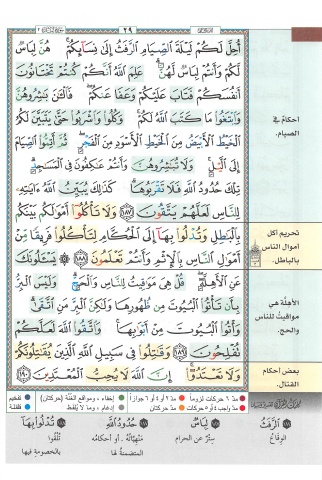 ٢٩
أُحِلَّ لَكُمْ لَيْلَةَ ٱلصِّيَامِ ٱلرَّفَثُ إِلَىٰ نِسَآئِكُمْ ۚ هُنَّ لِبَاسٌ
لَّكُمْ وَأَنتُمْ لِبَاسٌ لَّهُنَّ ۗ عَلِمَ ٱللَّهُ أَنَّكُمْ كُنتُمْ تَخْتَانُونَ
أَنفُسَكُمْ فَتَابَ عَلَيْكُمْ وَعَفَا عَنكُمْ ۖ فَٱلْـَٰٔنَ بَـٰشِرُوهُنَّ
وَٱبْتَغُوا۟ مَا كَتَبَ ٱللَّهُ لَكُمْ ۚ وَكُلُوا۟ وَٱشْرَبُوا۟ حَتَّىٰ يَتَبَيَّنَ لَكُمُ
ٱلْخَيْطُ ٱلْأَبْيَضُ مِنَ ٱلْخَيْطِ ٱلْأَسْوَدِ مِنَ ٱلْفَجْرِ ۖ ثُمَّ أَتِمُّوا۟ ٱلصِّيَامَ
إِلَى ٱلَّيْلِ ۚ وَلَا تُبَـٰشِرُوهُنَّ وَأَنتُمْ عَـٰكِفُونَ فِى ٱلْمَسَـٰجِدِ ۗ
تِلْكَ حُدُودُ ٱللَّهِ فَلَا تَقْرَبُوهَا ۗ كَذَٰلِكَ يُبَيِّنُ ٱللَّهُ ءَايَـٰتِهِۦ
لِلنَّاسِ لَعَلَّهُمْ يَتَّقُونَ ١٨٧ وَلَا تَأْكُلُوٓا۟ أَمْوَٰلَكُم بَيْنَكُم
بِٱلْبَـٰطِلِ وَتُدْلُوا۟ بِهَآ إِلَى ٱلْحُكَّامِ لِتَأْكُلُوا۟ فَرِيقًا مِّنْ
أَمْوَٰلِ ٱلنَّاسِ بِٱلْإِثْمِ وَأَنتُمْ تَعْلَمُونَ ١٨٨ ۞ يَسْـَٔلُونَكَ
عَنِ ٱلْأَهِلَّةِ ۖ قُلْ هِىَ مَوَٰقِيتُ لِلنَّاسِ وَٱلْحَجِّ ۗ وَلَيْسَ ٱلْبِرُّ
بِأَن تَأْتُوا۟ ٱلْبُيُوتَ مِن ظُهُورِهَا وَلَـٰكِنَّ ٱلْبِرَّ مَنِ ٱتَّقَىٰ ۗ
وَأْتُوا۟ ٱلْبُيُوتَ مِنْ أَبْوَٰبِهَا ۚ وَٱتَّقُوا۟ ٱللَّهَ لَعَلَّكُمْ
تُفْلِحُونَ ١٨٩ وَقَـٰتِلُوا۟ فِى سَبِيلِ ٱللَّهِ ٱلَّذِينَ يُقَـٰتِلُونَكُمْ
وَلَا تَعْتَدُوٓا۟ ۚ إِنَّ ٱللَّهَ لَا يُحِبُّ ٱلْمُعْتَدِينَ ١٩٠
أحكامٌ في
الصيام.
تحريم أكل
أموال الناس
بالباطل.
الأهلّة هي
مواقيت للناس
والحج.
بعض أحكام
القتال.
مدّ ٦ حركات لزوماً
مدّ ٢ أو ٤ أو ٦ جوازاً
إخفاء، ومواقع الغُنّة (حركتان)
تفخيم
مدّ واجب ٤ أو ٥ حركات
مدّ حركتان
إدغام، وما لا يُلفظ
قلقلة
ٱلرَّفَثُ
الوِقَاعُ
لِبَاسٌ
سِتْرٌ عن الحرام
حُدُودُ ٱللَّهِ
مَنْهِيَّاتُهُ . أو أحكامُه
المتضمنةُ لها
تُدْلُوا۟ بِهَآ
تُلْقُوا
بالخصومة فيها